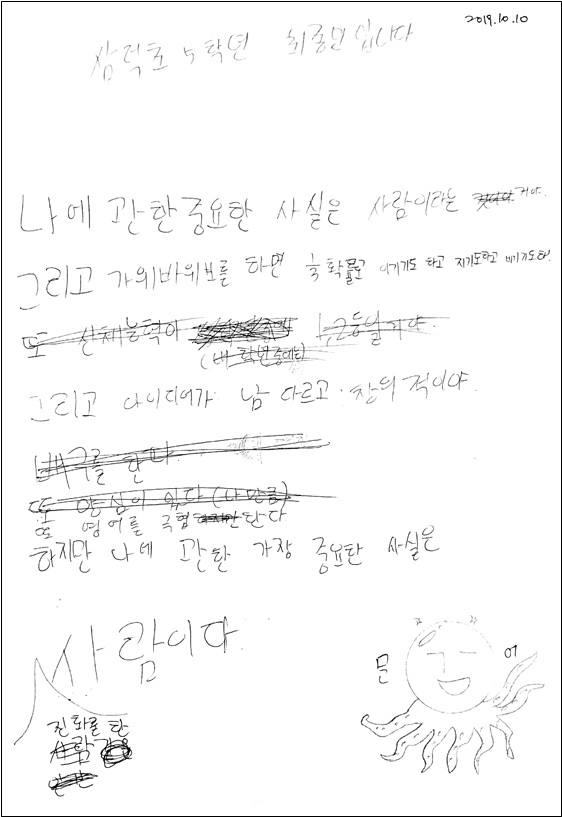 2019.10.10
삼덕초 5학년 최종민입니다
나에 관한 중요한 사실은 사람이라는 거야.
그리고 가위바위보를 하면 이기기도 하고 지기도하고 비기기도해.
또 신체능력이 1,2등일거야.
(내 학년중에)
그리고 아이디어가 남 다르고 창의적이야.
배구를 한다.
또 양심이 있다 (나만큼)
또 영어를 극혐한다
하지만 나에 관한 가장 중요한 사실은
사람이다
진화를 한
문어